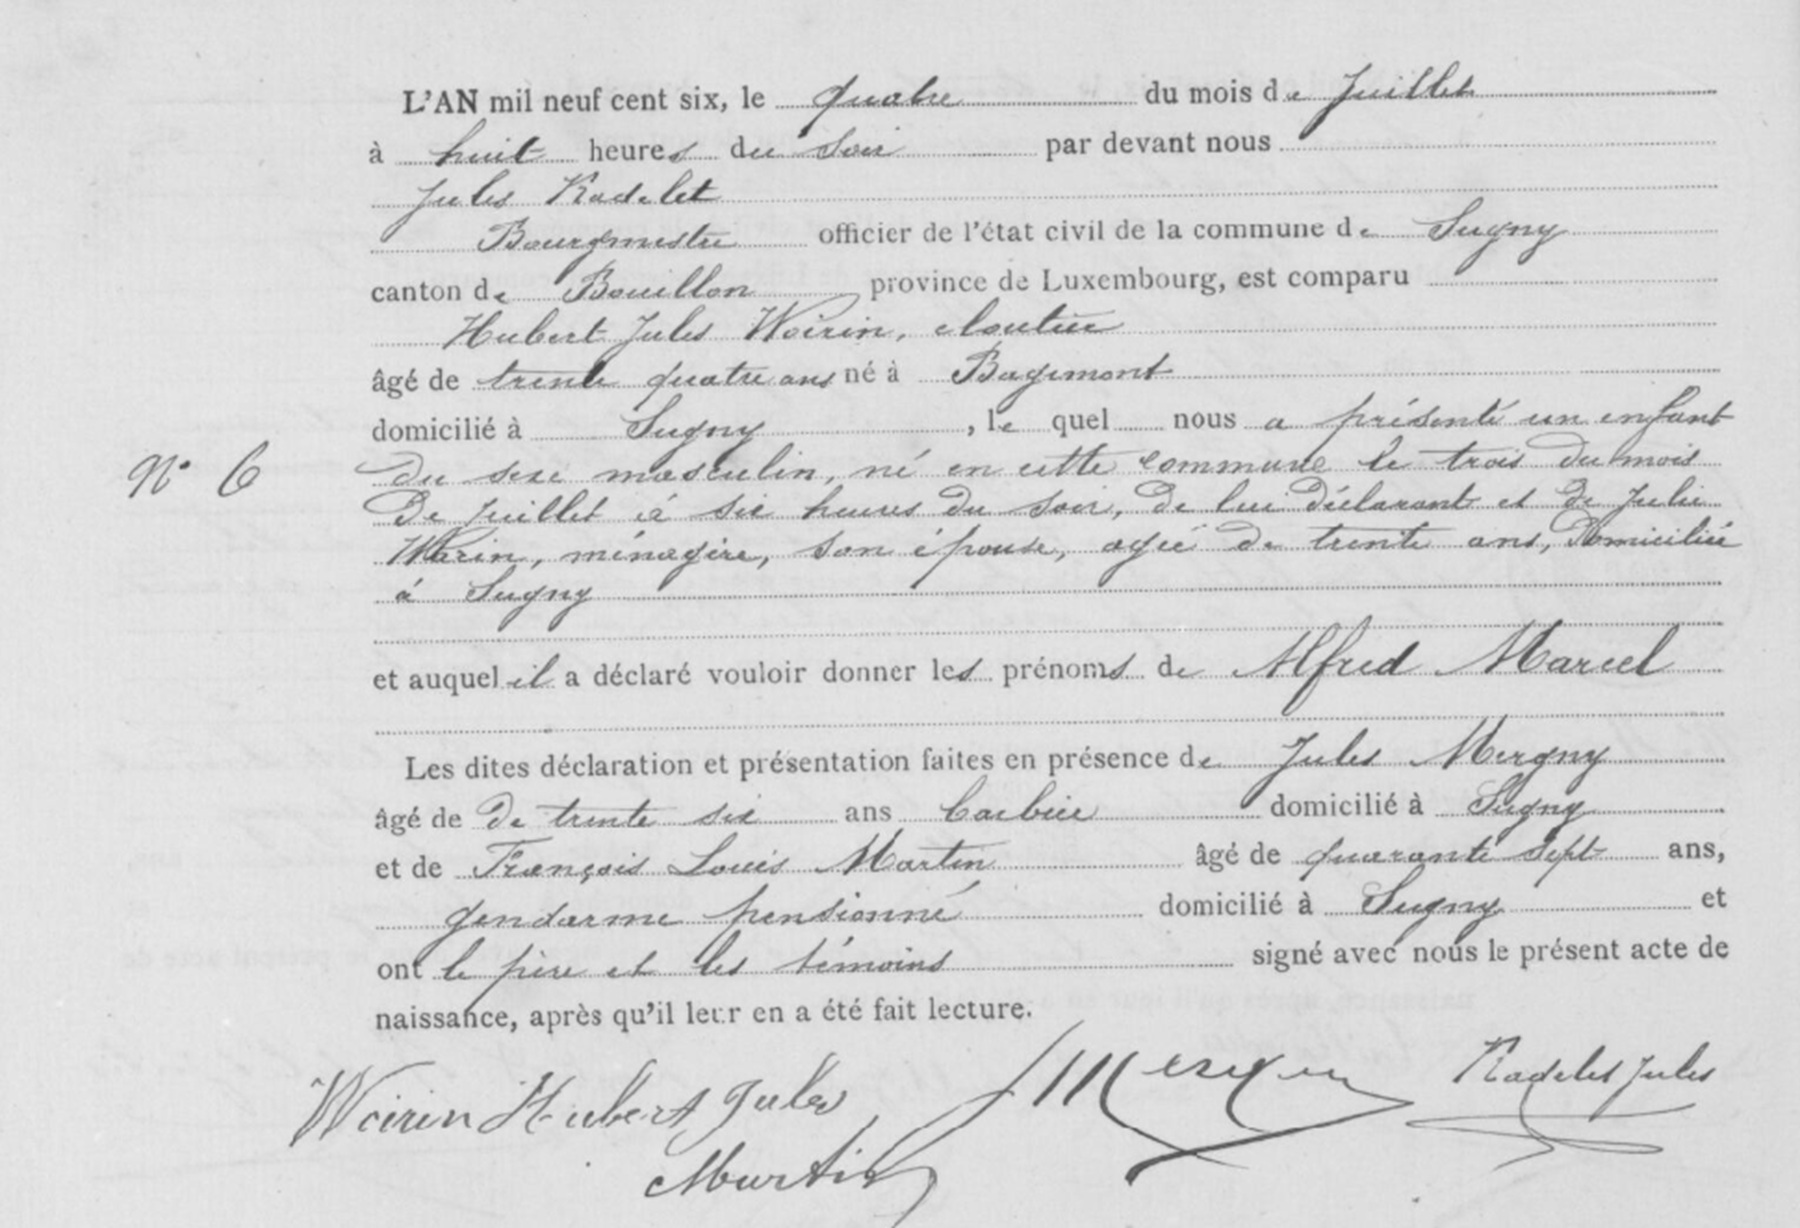 L'AN mil neuf cent six, le quatre du mois de Juillet
à huit heures du soir par devant nous
Jules Radelet
Bourgmestre officier de l'état civil de la commune de Sugny
canton de Bouillon province de Luxembourg, est comparu
Hubert Jules Woirin, cloutier
âgé de trente quatre ans né à Bagimont
domicilié à Sugny, le quel nous a présenté un enfant
du sexe masculin, né en cette commune le trois du mois
N° 6
de juillet à six heures du soir, de lui déclarant et de Julie
Warin, ménagère, son épouse, agée de trente ans, domiciliée
à Sugny
et auquel il a déclaré vouloir donner les prénoms de Alfred Marcel
Les dites déclaration et présentation faites en présence de Jules Mergny
âgé de de trente six ans barbier domicilié à Sugny
et de François Louis Martin âgé de quarante sept ans,
gendarme pensionné domicilié à Sugny et
ont le père et les témoins signé avec nous le présent acte de
naissance, après qu'il leur en a été fait lecture.
Woirin Hubert Jules J Mergny Radelet Jules
Martin